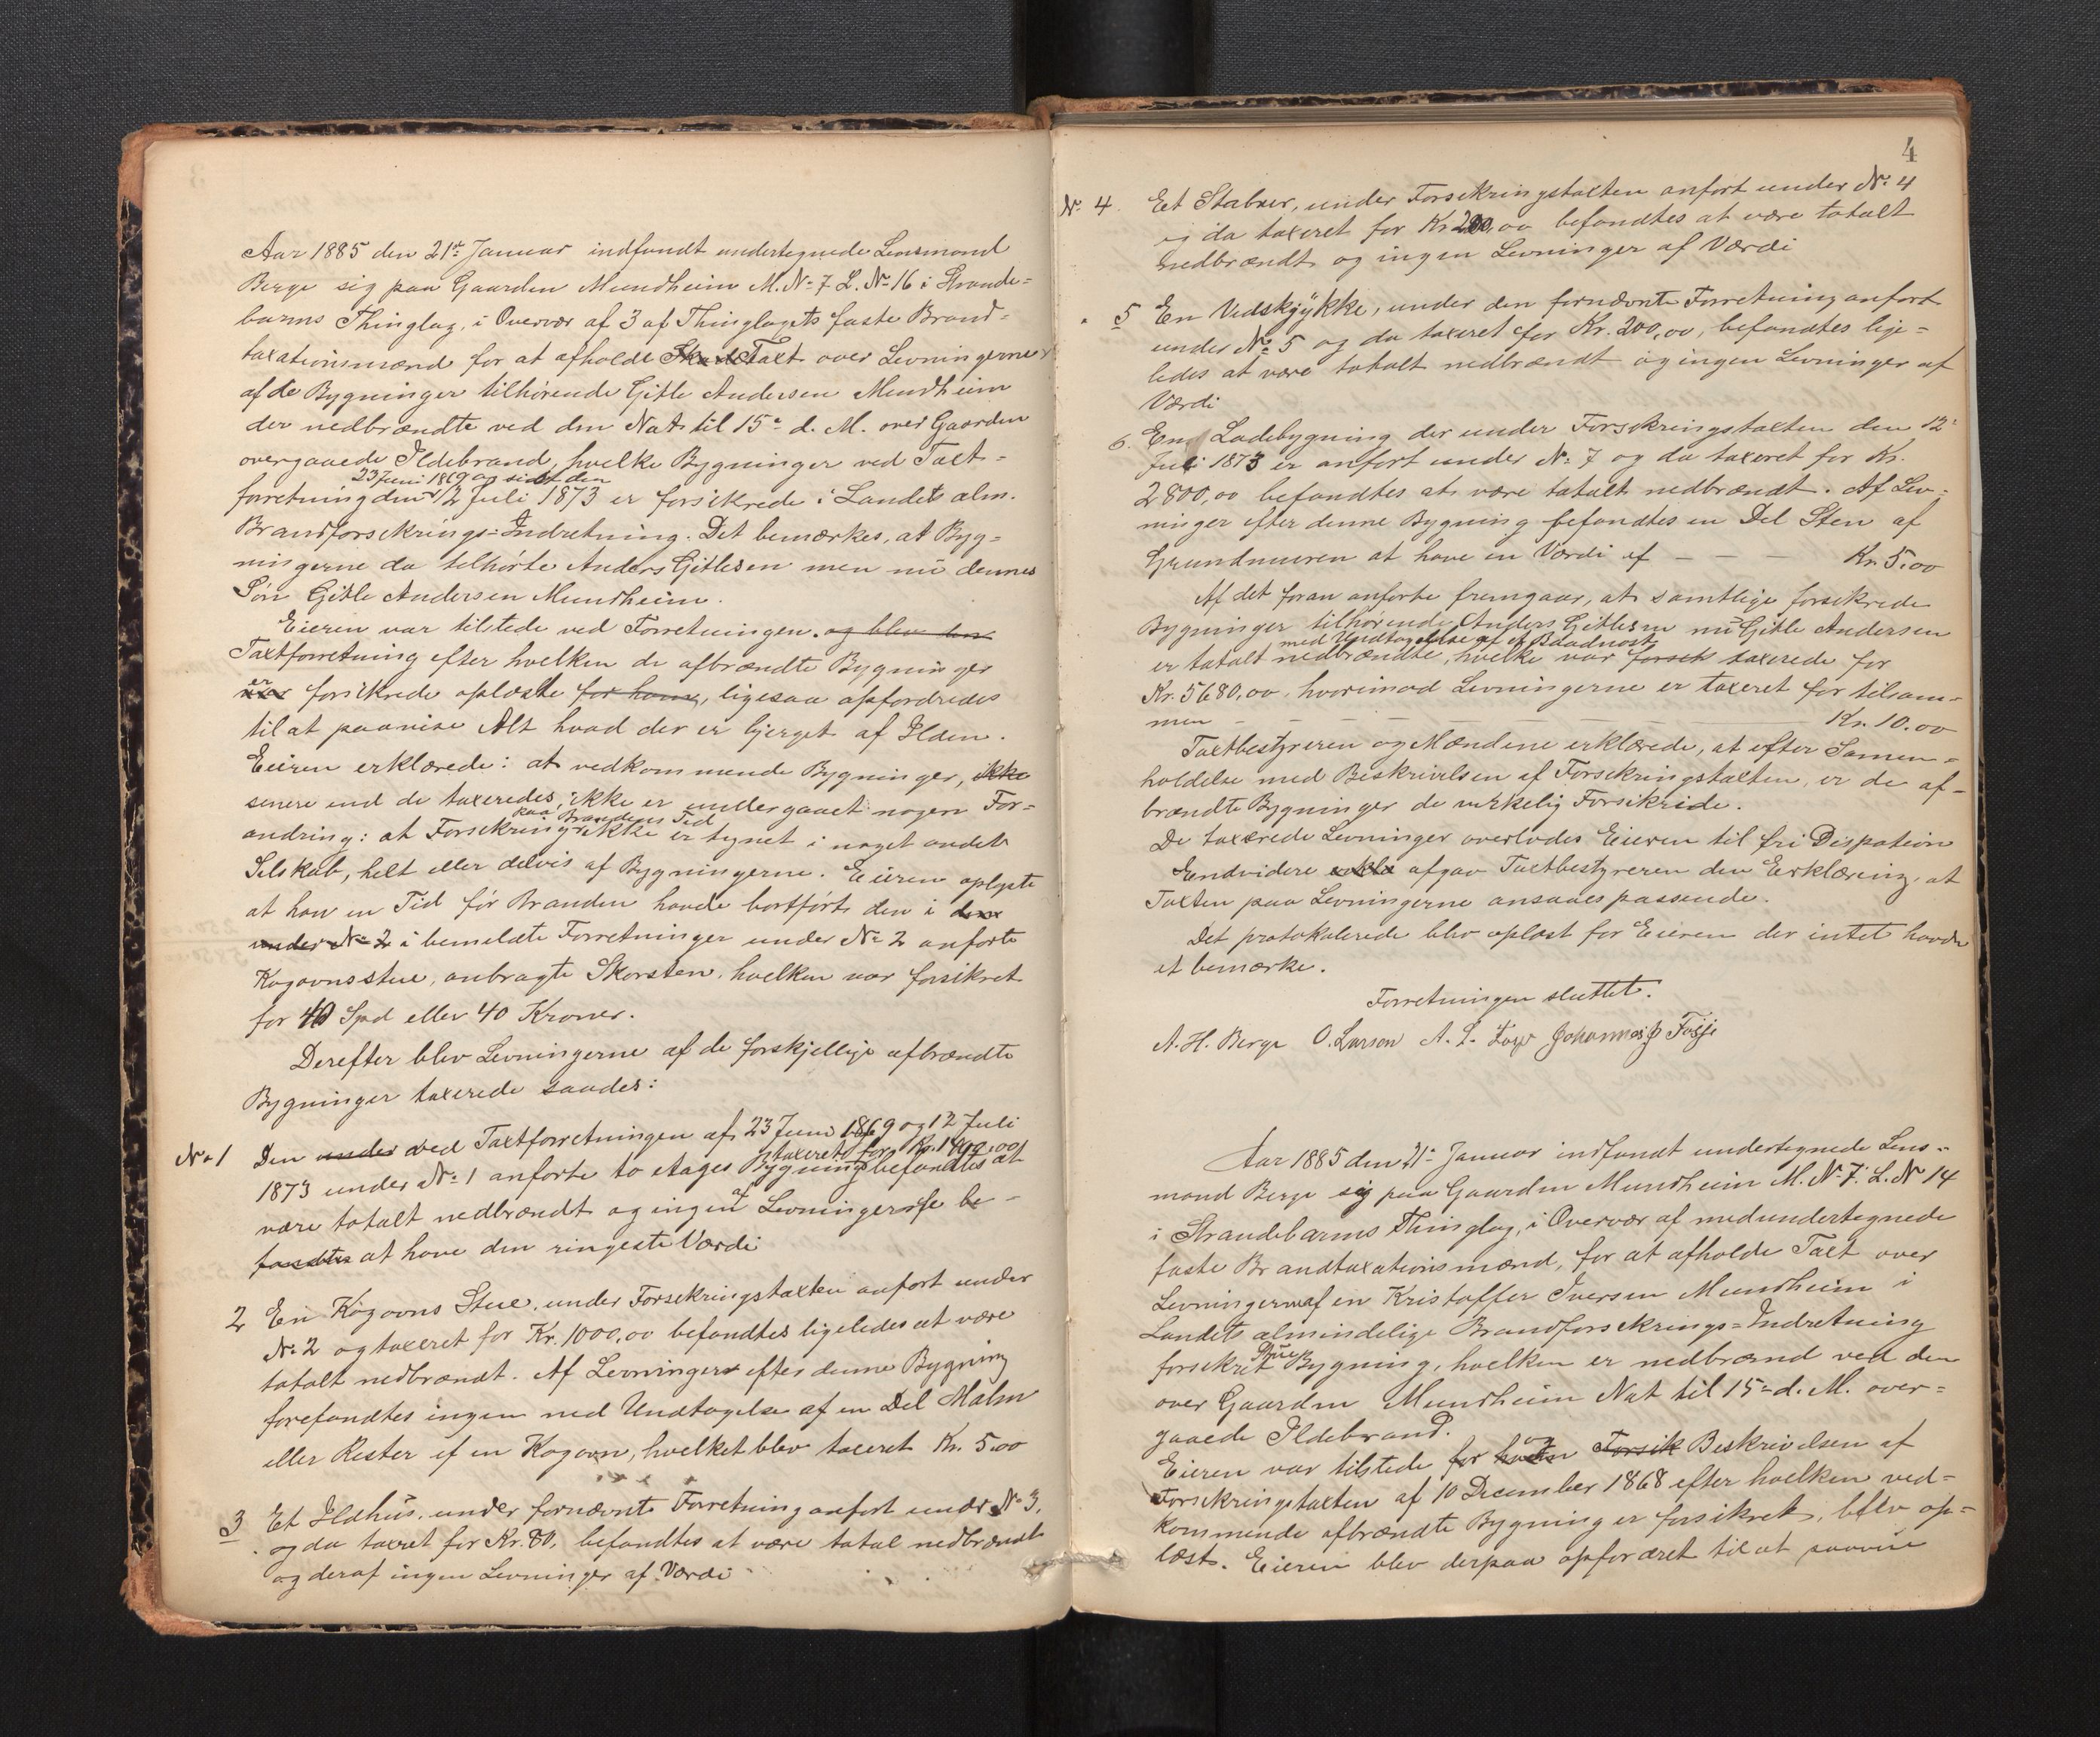 Aar 1885 den 21de Januar indfandt undertegnede Lensmand
Berge sig paa Gaarden Mundheim M. No 7 L. No 16 i Strande-
barms Thinglag, i Overvær af 3 af Thinglagets faste Brand-
taxationsmænd for at afholde Skade Taxt over Levningerne
af de Bygninger tilhørende Gitle Andersen Mundheim
der nedbrændte ved den Nat til 15de d. M. over Gaarden
overgaaede Ildebrand, hvilke Bygninger ved Taxt-
23 Juni 1869 og sidst den
forretning den 12 Juli 1873 er forsikrede i Landets alm.
Brandforsikrings-Indretning. Det bemærkes, at Byg-
ningerne da tilhørte Anders Gitlesen men nu dennes
Søn Gitle Andersen Mundheim.
Eieren var tilstede ved Forretningen. og blev den
Taxtforretning efter hvilken de afbrændte Bygninger
er
var forsikrede oplæste for ham, ligesaa opfordredes
til at paavise Alt hvad der er bjerget af Ilden.
Eieren erklærede: at vedkommende Bygninger, ikke
senere end de taxeredes, ikke er undergaaet nogen For-
paa Brandens Tid
andring: at Forsikring ikke er tegnet i noget andet
Selskab, helt eller delvis af Bygningerne. Eieren oplyste
at han en Tid før Branden havde bortført den i den
under No 2 i bemeldte Forretninger under No 2 anførte
Kogovnsstue, anbragte Skorsten, hvilken var forsikret
for 10 Spd eller 40 Kroner.
Derefter blev Levningerne af de forskjellige afbrændte
Bygninger taxerede saades:
No 1 Den under ved Taxtforretningen af 23 Juni 1869 og 12 Juli
taxeret for Kr. 1400,00
1873 under No 1 anførte to etages Bygning befandtes at
være totalt nedbrændt og ingen af Levningerne be-
fandtes at have den ringeste Værdi
2 En Kogovns Stue, under Forsikringstaxten anført under
No 2 og taxeret for Kr. 1000,00 befandtes ligeledes at være
totalt nedbrændt. Af Levninger efter denne Bygning
forefandtes ingen med Undtagelse af en Del Malm
eller Rester af en Kogovn, hvilket blev taxeret Kr. 5.00
3 Et Ildhus, under fornævnte Forretning anført under No 3,
og da taxret for Kr. 80, befandtes at være total nedbrændt
og deraf ingen Levninger af Værdi
4
No 4. Et Stabur, under Forsikringstaxten anført under No 4
og da taxeret for Kr 200,00 befandtes at være totalt
nedbrændt og ingen Levninger af Værdi
5 En Vedskjykke, under den fornævnte Forretning anført
under No 5 og da taxeret for Kr. 200,00, befandtes lige-
ledes at være totalt nedbrændt og ingen Levninger af
Værdi
6. En Ladebygning der under Forsikringstaxten den 12
Juli 1873 er anført under No 7 og da taxeret for Kr.
2800,00 befandtes at være totalt nedbrændt. Af Lev-
ninger efter denne Bygning befandtes en Del Sten af
Grundmuren at have en Værdi af - - - Kr. 5.00
Af det foran anførte fremgaar, at samtlige forsikrede
Bygninger tilhørende Anders Gitlesen nu Gitle Andersen
med Undtagelse af et Baadnøst
er totalt nedbrændte, hvilke var forsik taxerede for
Kr. 5680,00, hvorimod Levningerne er taxeret for tilsam-
men - - - - - - Kr. 10.00
Taxtbestyreren og Mændene erklærede, at efter Samen-
holdelse med Beskrivelsen af Forsikringstaxten, er de af-
brændte Bygninger de virkelig Forsikrede.
De taxerede Levninger overlodes Eieren til fri Dispation
Endvidere erklæ afgav Taxtbestyreren den Erklæring, at
Taxten paa Levningerne ansaaes passende.
Det protokolerede blev oplæst for Eieren der intet havde
at bemærke.
Forretningen sluttet.
A. H. Berge O. Larson A. L. Johannes J Fosse
Aar 1885 den 21de Januar indfandt undertegnede Lens-
mand Berge sig paa Gaarden Mundheim M. No 7. L. No 14
i Strandebarms Thinglag, i Overvær af medundertegnede
faste Brandtaxationsmænd, for at afholde Taxt over
Levningerne af en Kristoffer Iversen Mundheim i
Landets almindelige Brandforsikrings-Indretning
Stue
forsikret Bygning, hvilken er nedbrænd ved den
over Gaarden Mundheim Nat til 15de d. M. over-
gaaede Ildebrand.
Eieren var tilstede for ham og Forsik Beskrivelsen af
Forsikringstaxten af 10 December 1868 efter hvilken ved-
kommende afbrændte Bygning er forsikret, blev op-
læst. Eieren blev derpaa opfordret til at paavise